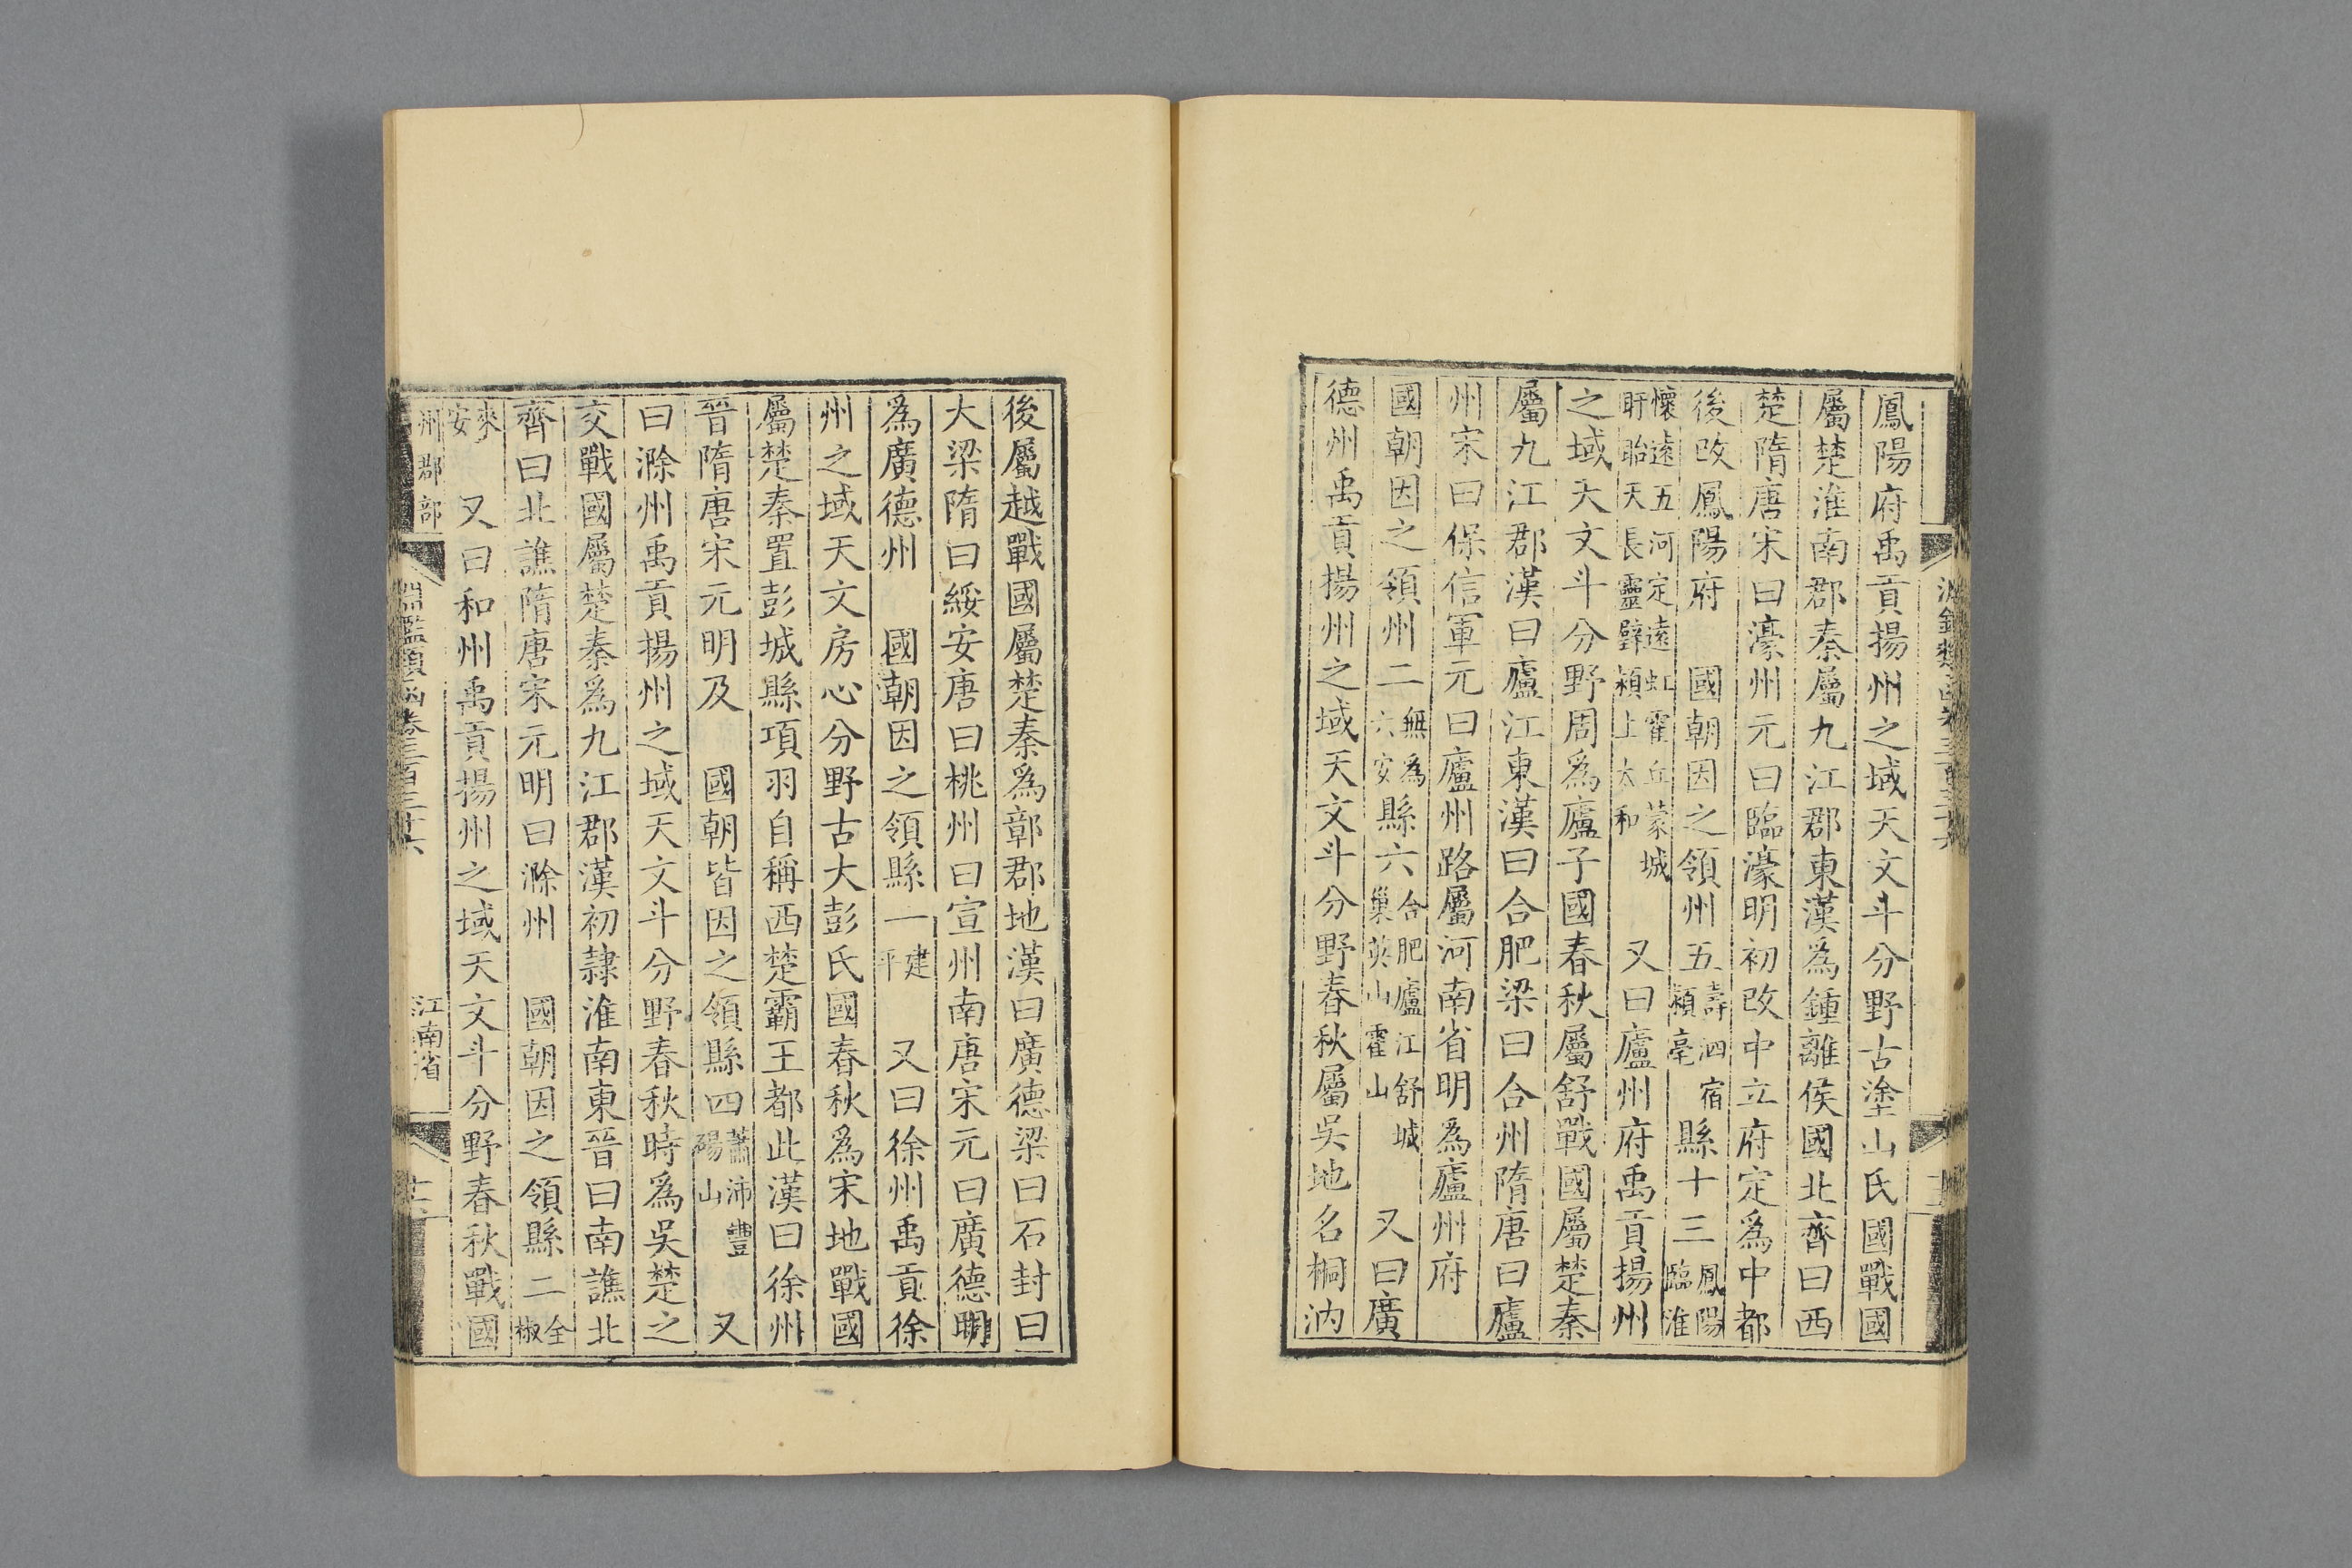 鳳陽府禹貢揚州之域天文斗分野古塗山氏國戰國
屬楚淮南郡秦屬九江郡東漢爲鍾離侯國北齊曰西
楚隋唐宋曰濠州元曰臨濠明初改中立府定爲中都
後改鳳陽府　國朝因之領州五壽泗宿潁亳縣十三鳳陽臨淮
懷遠五河定遠虹霍丘蒙城盱眙天長靈璧潁上太和　又曰廬州府禹貢揚州
之域天文斗分野周爲廬子國春秋屬舒戰國屬楚秦
屬九江郡漢曰廬江東漢曰合肥梁曰合州隋唐曰廬
州宋曰保信軍元曰廬州路屬河南省明爲廬州府
國朝因之領州二無爲六安縣六合肥廬江舒城巢英山霍山　又曰廣
德州禹貢揚州之域天文斗分野春秋屬吳地名桐汭
後屬越戰國屬楚秦爲鄣郡地漢曰廣德梁曰石封曰
大梁隋曰綏安唐曰桃州曰宣州南唐宋元曰廣德明
爲廣德州　國朝因之領縣一建平　又曰徐州禹貢徐
州之域天文房心分野古大彭氏國春秋爲宋地戰國
屬楚秦置彭城縣項羽自稱西楚霸王都此漢曰徐州
晉隋唐宋元明及　國朝皆因之領縣四蕭沛豐碭山　又
曰滁州禹貢揚州之域天文斗分野春秋時爲吳楚之
交戰國屬楚秦爲九江郡漢初隷淮南東晉曰南譙北
齊曰北譙隋唐宋元明曰滁州　國朝因之領縣二全椒
來安　又曰和州禹貢揚州之域天文斗分野春秋戰國
州郡部
淵鑑類函卷三百三十六
江南省